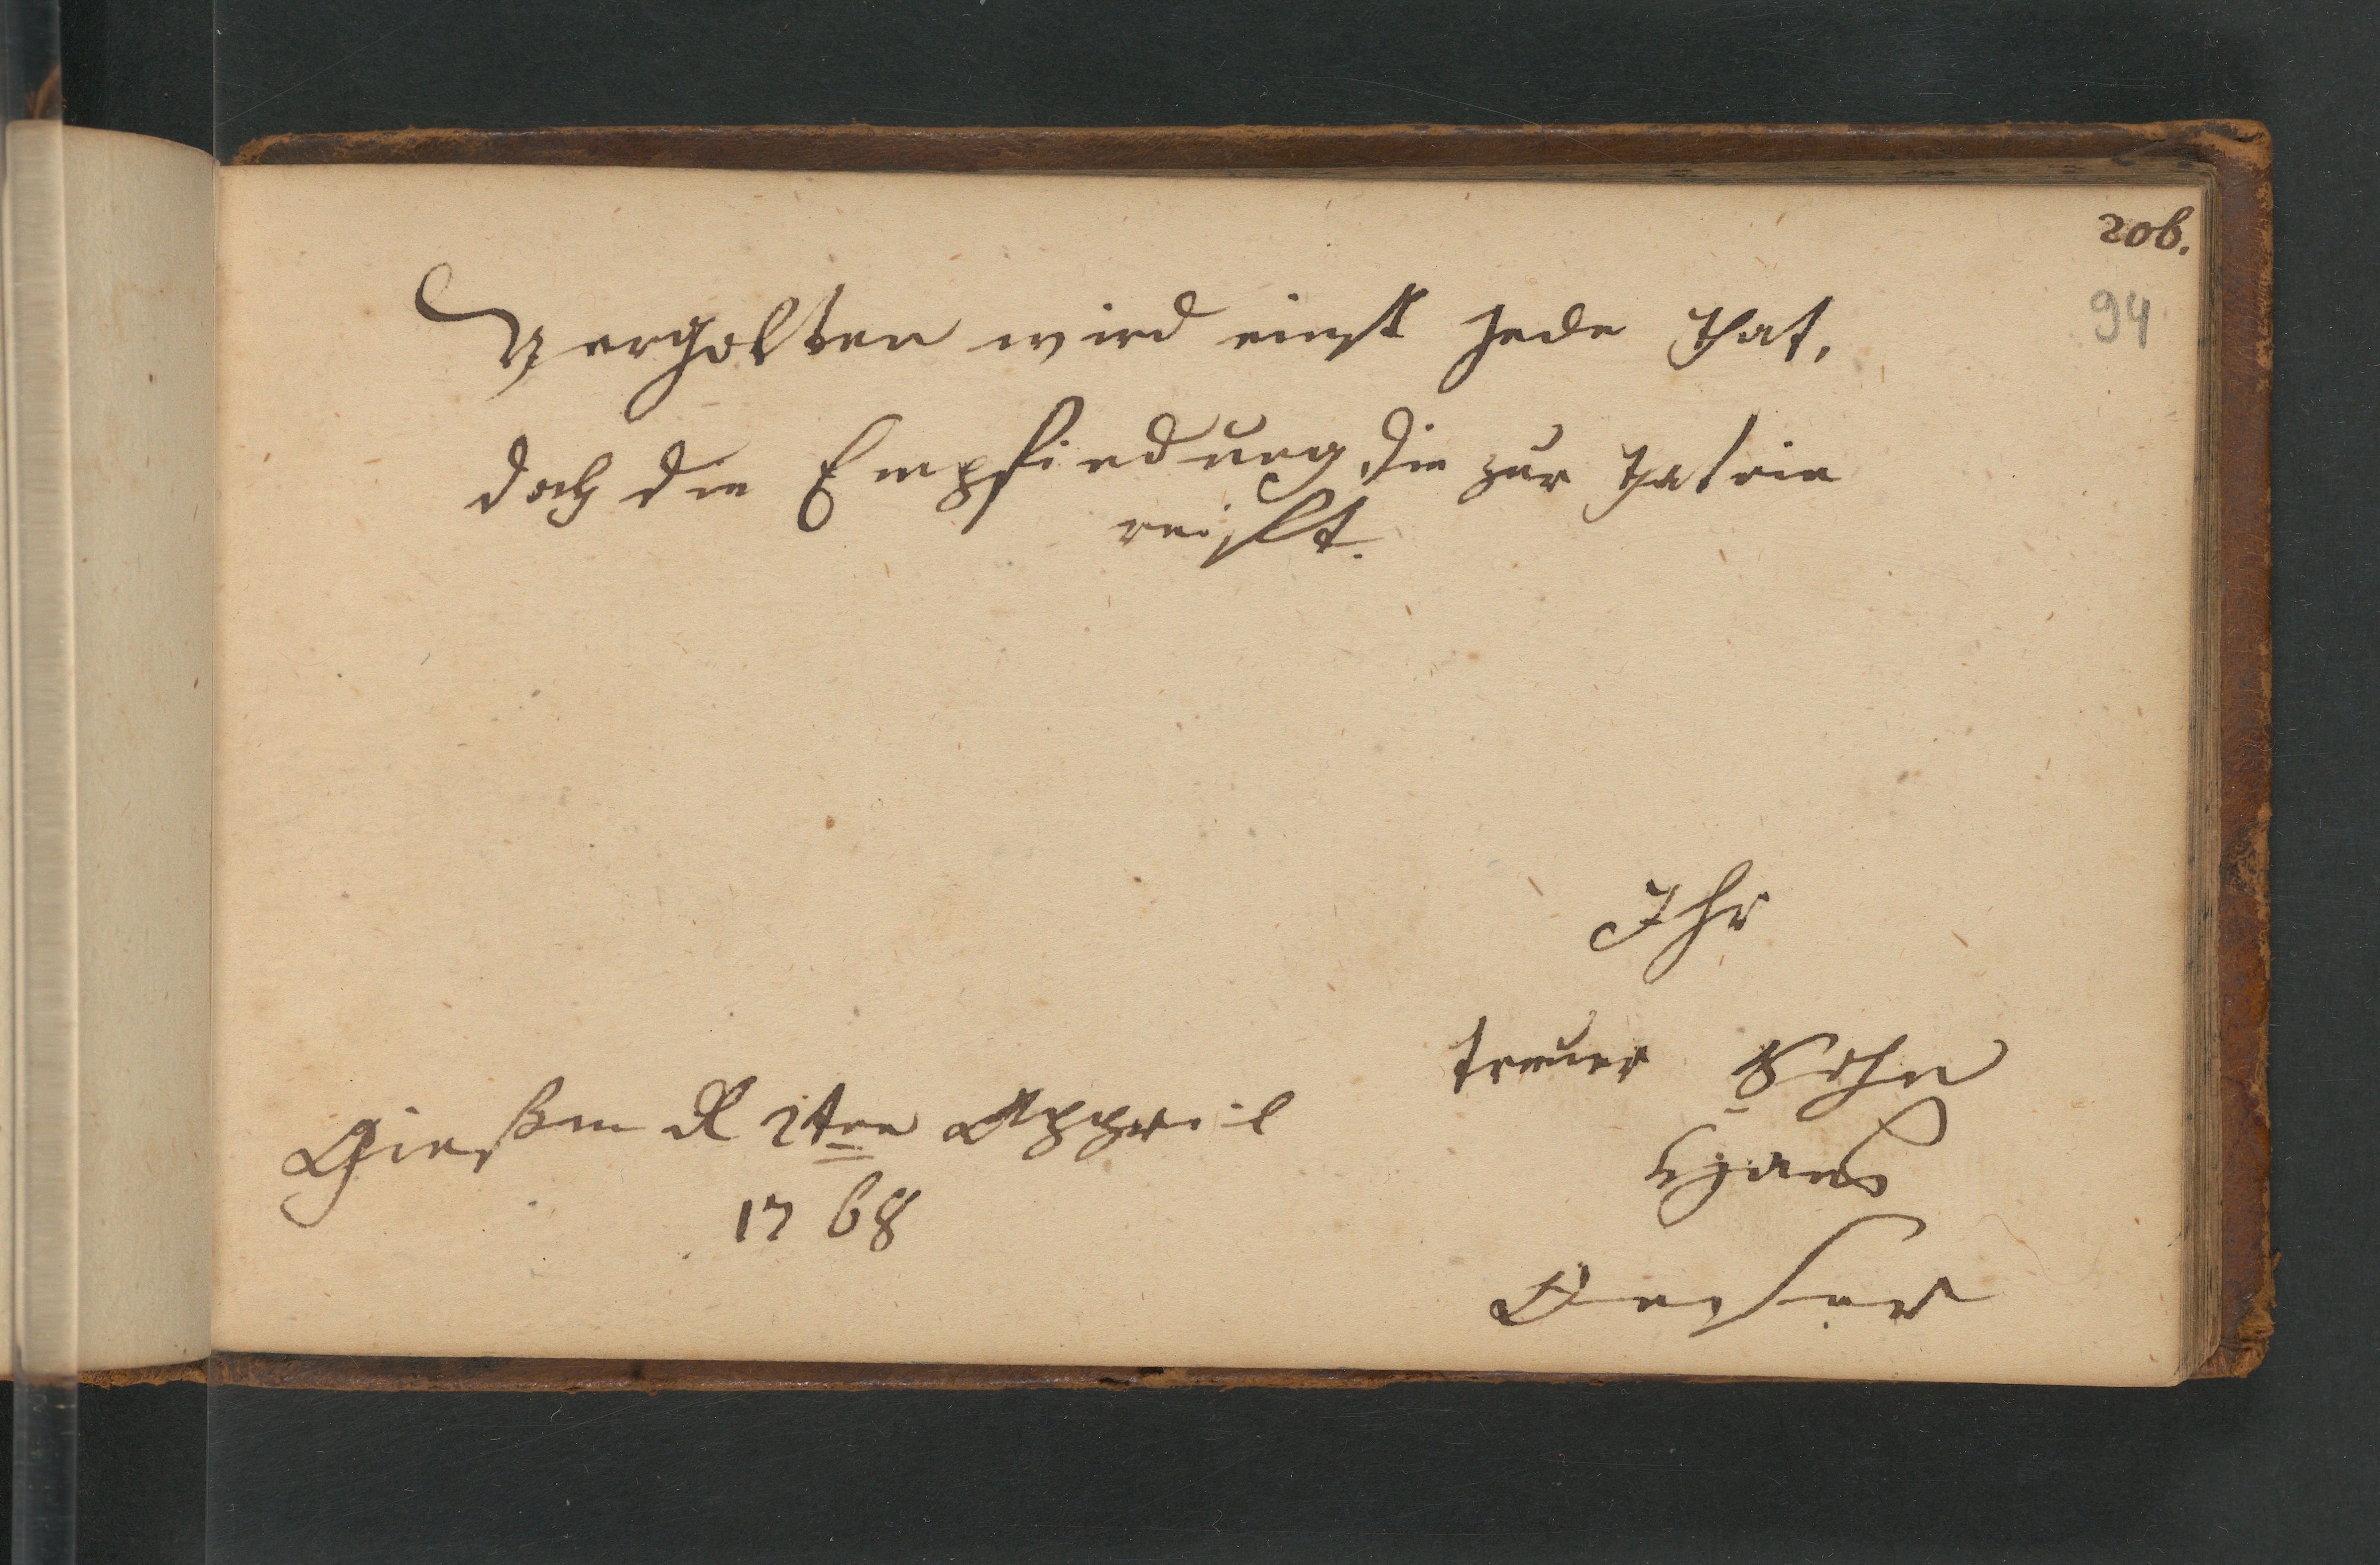 206.
94
Vergolten wird einst jede That,
doch die Empfindung die zur That ein
reist.
Ihr
treuer Sohn
Gießen d 2ten Appril
1768